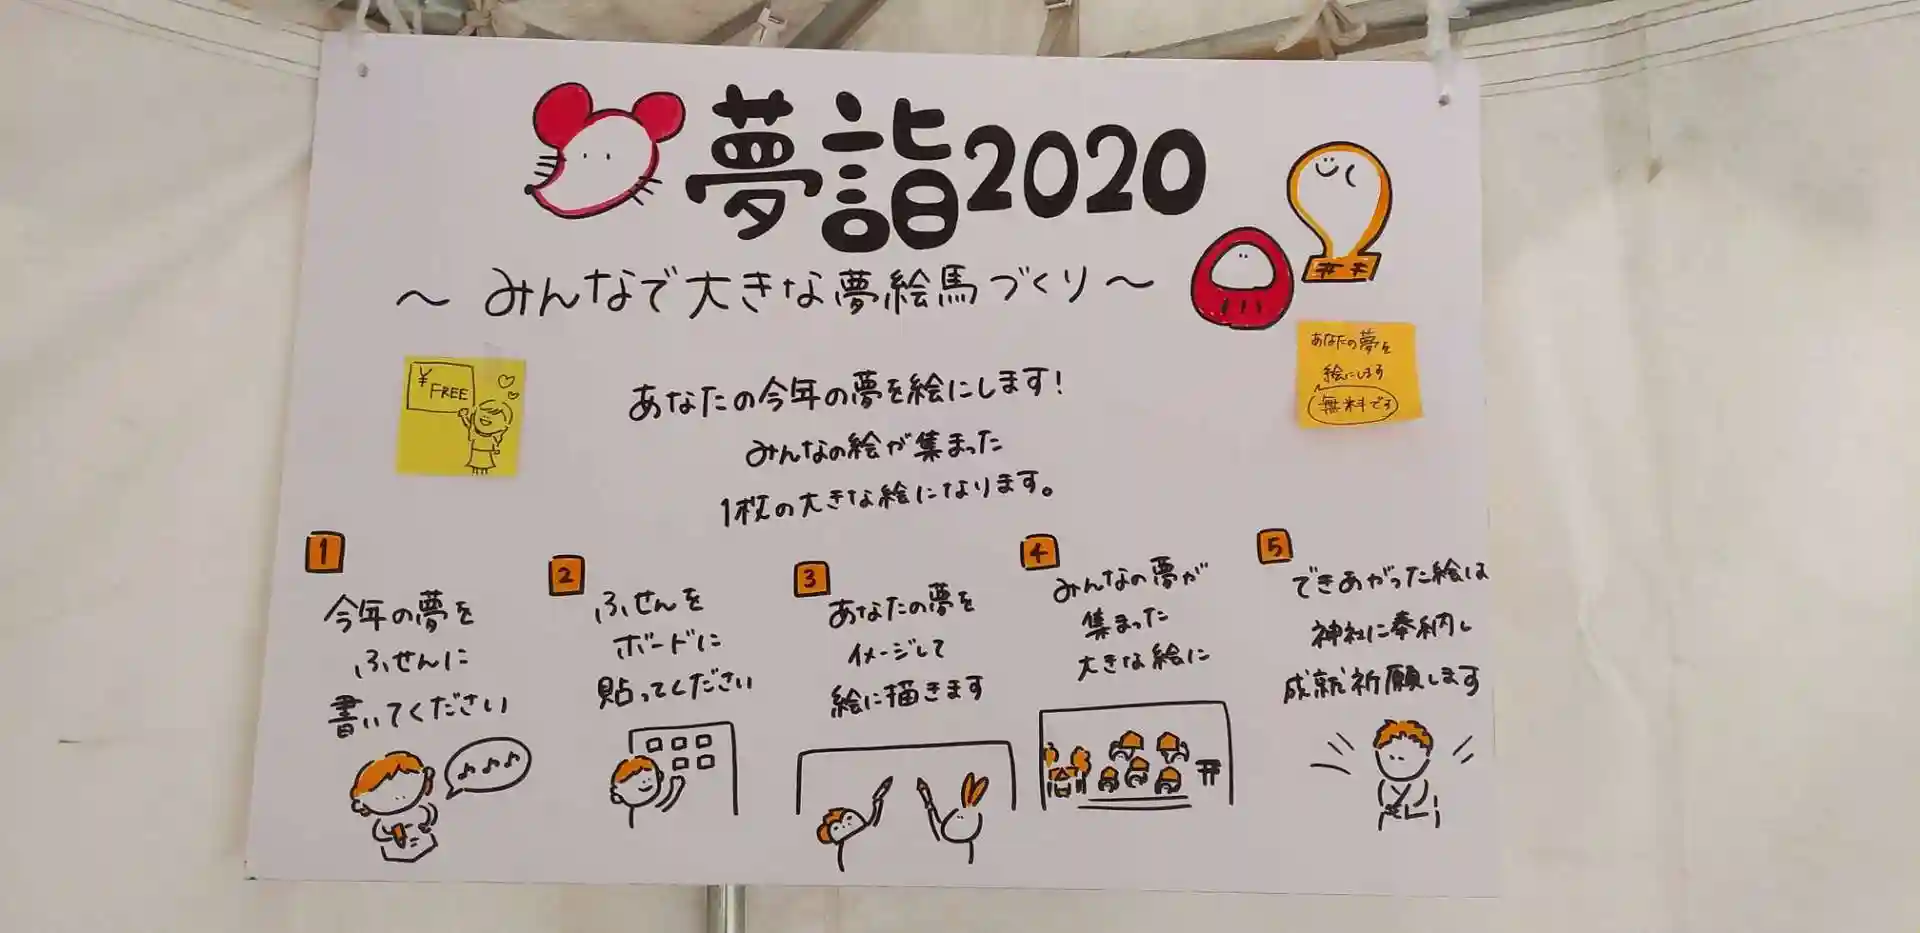 夢詣2020
～みんなで大きな夢絵馬づくり～
¥FREE
あなたの夢を
絵にします
無料です
あなたの今年の夢を絵にします!
みんなの絵が集まった
1枚の大きな絵になります。
1
今年の夢を
ふせんに
書いてください
2
ふせんを
ボードに
貼ってください
3
あなたの夢を
イメージして
絵に描きます
4
みんなの夢が
集まった
大きな絵に
5
できあがった絵は
神社に奉納し
成就祈願します